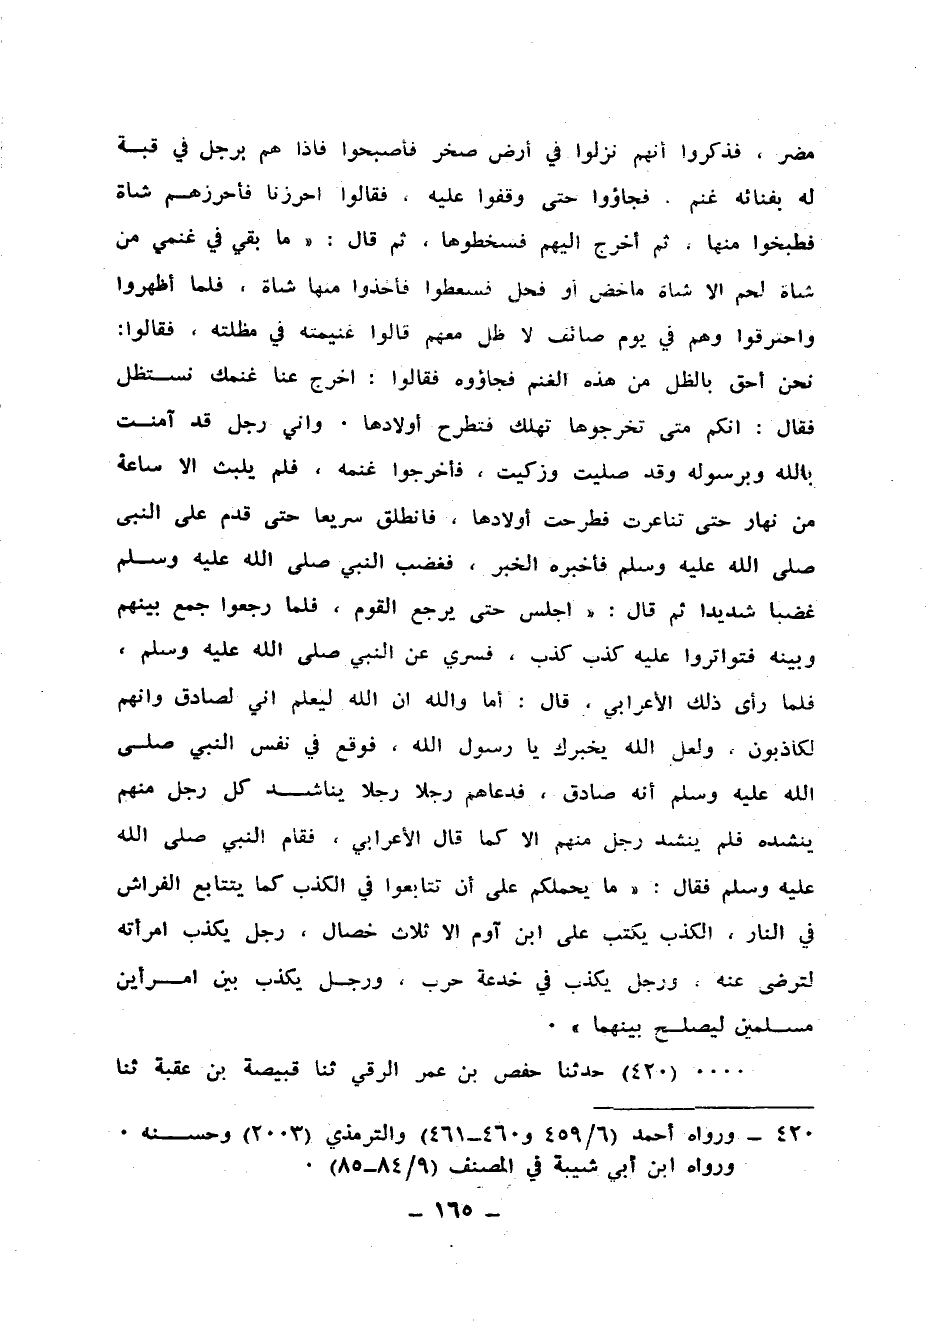 مضر ، فذكروا أنهم نزلوا في أرض صخر فأصبحوا فاذا هم برجل في قبــة
له بفنائه غنم . فجاؤوا حتى وقفوا عليه ، فقالوا احرزنا فأحرزهــم شاة
فطبخوا منها ، ثم أخرج اليهم فسخطوها ، ثم قال : « ما بقي في غنمي من
شاة لحم الا شاة ماخض أو فحل فسعطوا فأخذوا منها شاة ، فلما أظهروا
واحترقوا وهم في يوم صائف لا ظل معهم قالوا غنيمته في مظلته ، فقالوا:
نحن أحق بالظل من هذه الغنم فجاؤوه فقالوا : اخرج عنا غنمك نســتظل
فقال : انكم متى تخرجوها تهلك فتطرح أولادها ٠ واني رجل قد آمنــت
بالله وبرسوله وقد صليت وزكيت ، فأخرجوا غنمه ، فلم يلبث الا ساعة
من نهار حتى تناعرت فطرحت أولادها ، فانطلق سريعا حتى قدم على النبى
صلى الله عليه وسلم فأخبره الخبر ، فغضب النبي صلى الله عليه وســلم
غضبا شديدا ثم قال : « اجلس حتى يرجع القوم ، فلما رجعوا جمع بينهم
وبينه فتواتروا عليه كذب كذب ، فسري عن النبي صلى الله عليه وسلم ،
فلما رأى ذلك الأعرابي ، قال : أما والله ان الله ليعلم اني لصادق وانهم
لكاذبون ، ولعل الله يخبرك يا رسول الله ، فوقع في نفس النبي صلــى
الله عليه وسلم أنه صادق ، فدعاهم رجلا رجلا يناشــــد كل رجل منهم
ينشده فلم ينشد رجل منهم الا كما قال الأعرابي ، فقام النبي صلى الله
عليه وسلم فقال : « ما يحملكم على أن تتابعوا في الكذب كما يتتابع الفراش
في النار ، الكذب يكتب على ابن آوم الا ثلاث خصال ، رجل يكذب امرأته
لترضى عنه ، ورجل يكذب في خدعة حرب ، ورجــل يكذب بين امــرأين
مســلمين ليصلــح بينهما » ٠
٠٠٠٠ (٤٢٠) حدثنا حفص بن عمر الرقي ثنا قبيصة بن عقبة ثنا
٤٢٠ ــ ورواه أحمد (٤٥٩/٦ و٤٦٠ــ٤٦١) والترمذي (٢٠٠٣) وحســـنه ٠
ورواه ابن أبي شيبة في المصنف (٨٤/٩ــ٨٥) ٠
ــ ١٦٥ ــ